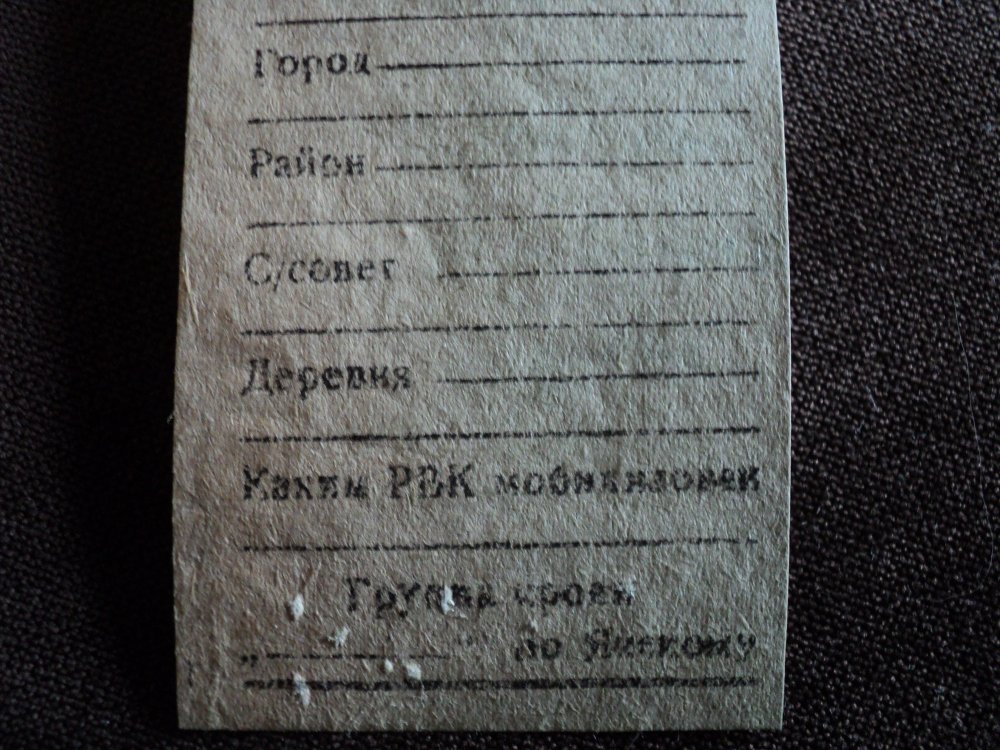 Город
Район
С/совет
Деревня
Каким РВК мобилизован
Группа крови
„ “ по Янскому